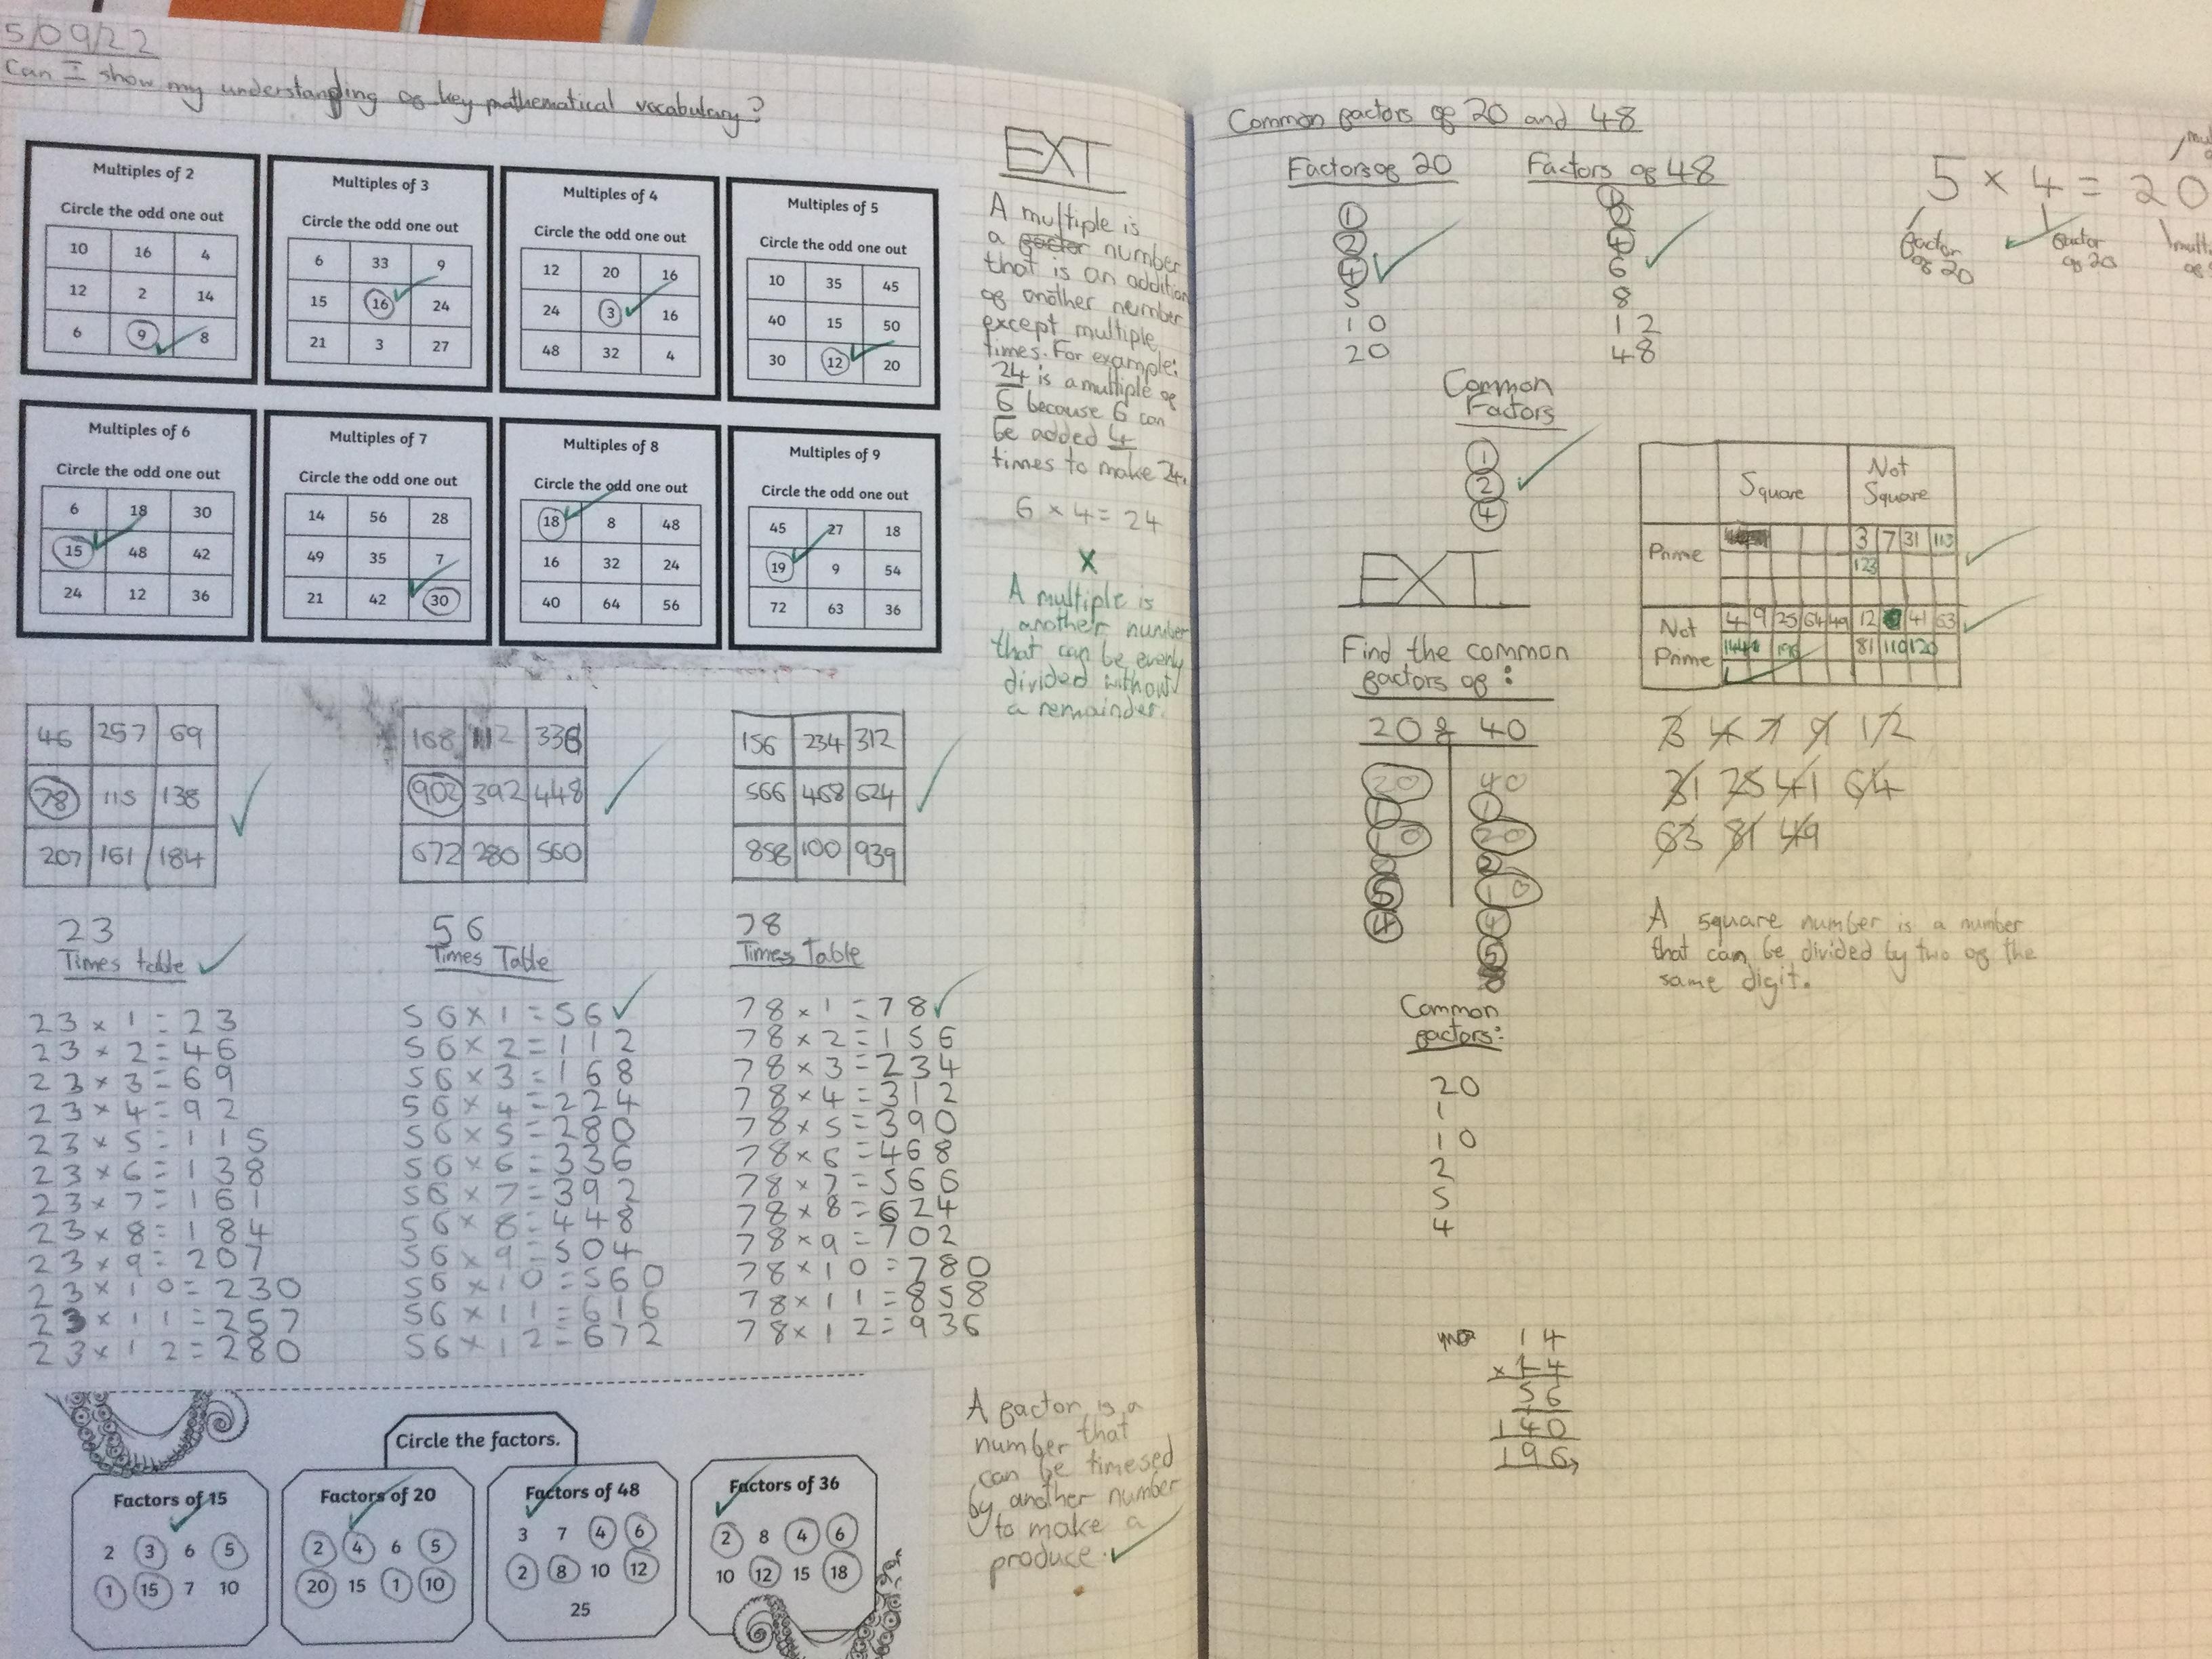 5/09/22
Can I show my understanding of key mathematical vocabulary?
Multiples of 2
Circle the odd one out
10 16 4
12 2 14
6 9 8
Multiples of 3
Circle the odd one out
6 33 9
15 16 24
21 3 27
Multiples of 4
Circle the odd one out
12 20 16
24 3 16
48 32 4
Multiples of 5
Circle the odd one out
10 35 45
40 15 50
30 12 20
Multiples of 6
Circle the odd one out
6 18 30
15 48 42
24 12 36
Multiples of 7
Circle the odd one out
14 56 28
49 35 7
21 42 30
Multiples of 8
Circle the odd one out
18 8 48
16 32 24
40 64 56
Multiples of 9
Circle the odd one out
45 27 18
19 9 54
72 63 36
EXT
A multiple is
a factor number
that is an addition
of another number
except multiple
times. For example:
24 is a multiple of
6 because 6 can
be added 4
times to make 24.
6 × 4 = 24
x
A multiple is
another number
that can be evenly
divided without
a remainder.
46 257 69
78 115 138
207 161 184
168 112 336
902 392 448
672 280 560
156 234 312
566 468 624
858 100 939
23
Times table
23 × 1 = 23
23 × 2 = 46
23 × 3 = 69
23 × 4 = 92
23 × 5 = 115
23 × 6 = 138
23 × 7 = 161
23 × 8 = 184
23 × 9 = 207
23 × 10 = 230
23 × 11 = 257
23 × 12 = 280
56
Times Table
56 × 1 = 56
56 × 2 = 112
56 × 3 = 168
56 × 4 = 224
56 × 5 = 280
56 × 6 = 336
56 × 7 = 392
56 × 8 = 448
56 × 9 = 504
56 × 10 = 560
56 × 11 = 616
56 × 12 = 672
78
Times Table
78 × 1 = 78
78 × 2 = 156
78 × 3 = 234
78 × 4 = 312
78 × 5 = 390
78 × 6 = 468
78 × 7 = 566
78 × 8 = 624
78 × 9 = 702
78 × 10 = 780
78 × 11 = 858
78 × 12 = 936
Circle the factors.
Factors of 15
2 3 6 5
1 15 7 10
Factors of 20
2 4 6 5
20 15 1 10
Factors of 48
3 7 4 6
2 8 10 12
25
Factors of 36
2 8 4 6
10 12 15 18
A factor is a
number that
can be timesed
by another number
to make a
produce.
Common factors of 20 and 48
Factors of 20
1
2
4
5
10
20
Factors of 48
1
2
4
6
8
12
48
Common
Factors
1
2
4
5 × 4 = 20
factor
of 20
factor
of 20
EXT
Find the common
factors of:
20 & 40
20 40
1 1
10 20
2 2
5 10
4 4
5
Common
factors:
20
1
10
2
5
4
Square
Not
Square
Prime
3 7 31 113
123
Not
Prime
4 9 25 64 49 12 41 63
144 196 81 110 120
1
3 4 7 9 12
31 25 41 64
63 81 49
A square number is a number
that can be divided by two of the
same digit.
14
× 14
56
140
196